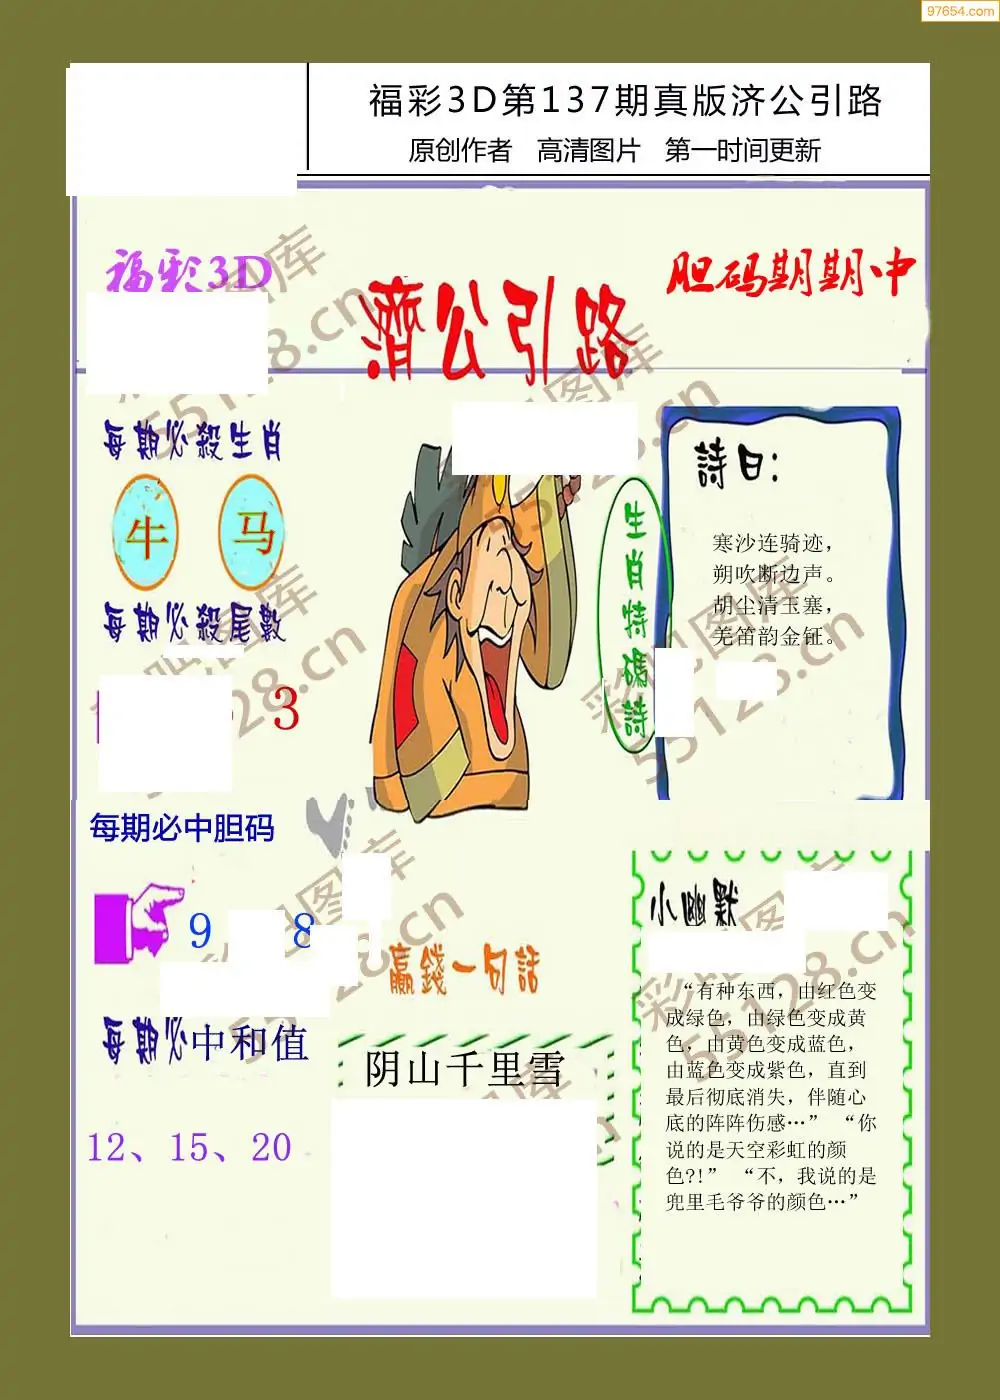 97654.com
福彩3D第137期真版济公引路
原创作者 高清图片 第一时间更新
福彩3D
濟公引路
胆码期期中
每期必殺生肖
牛 马
每期必殺尾數
3
生肖特碼詩
詩曰：
寒沙连骑迹，
朔吹断边声。
胡尘清玉塞，
羌笛韵金钲。
每期必中胆码
9 8
每期必中和值
12、15、20
贏錢一句話
阴山千里雪
小幽默
“有种东西，由红色变
成绿色，由绿色变成黄
色，由黄色变成蓝色，
由蓝色变成紫色，直到
最后彻底消失，伴随心
底的阵阵伤感…” “你
说的是天空彩虹的颜
色?!” “不，我说的是
兜里毛爷爷的颜色…”
彩吧图库
55128.cn